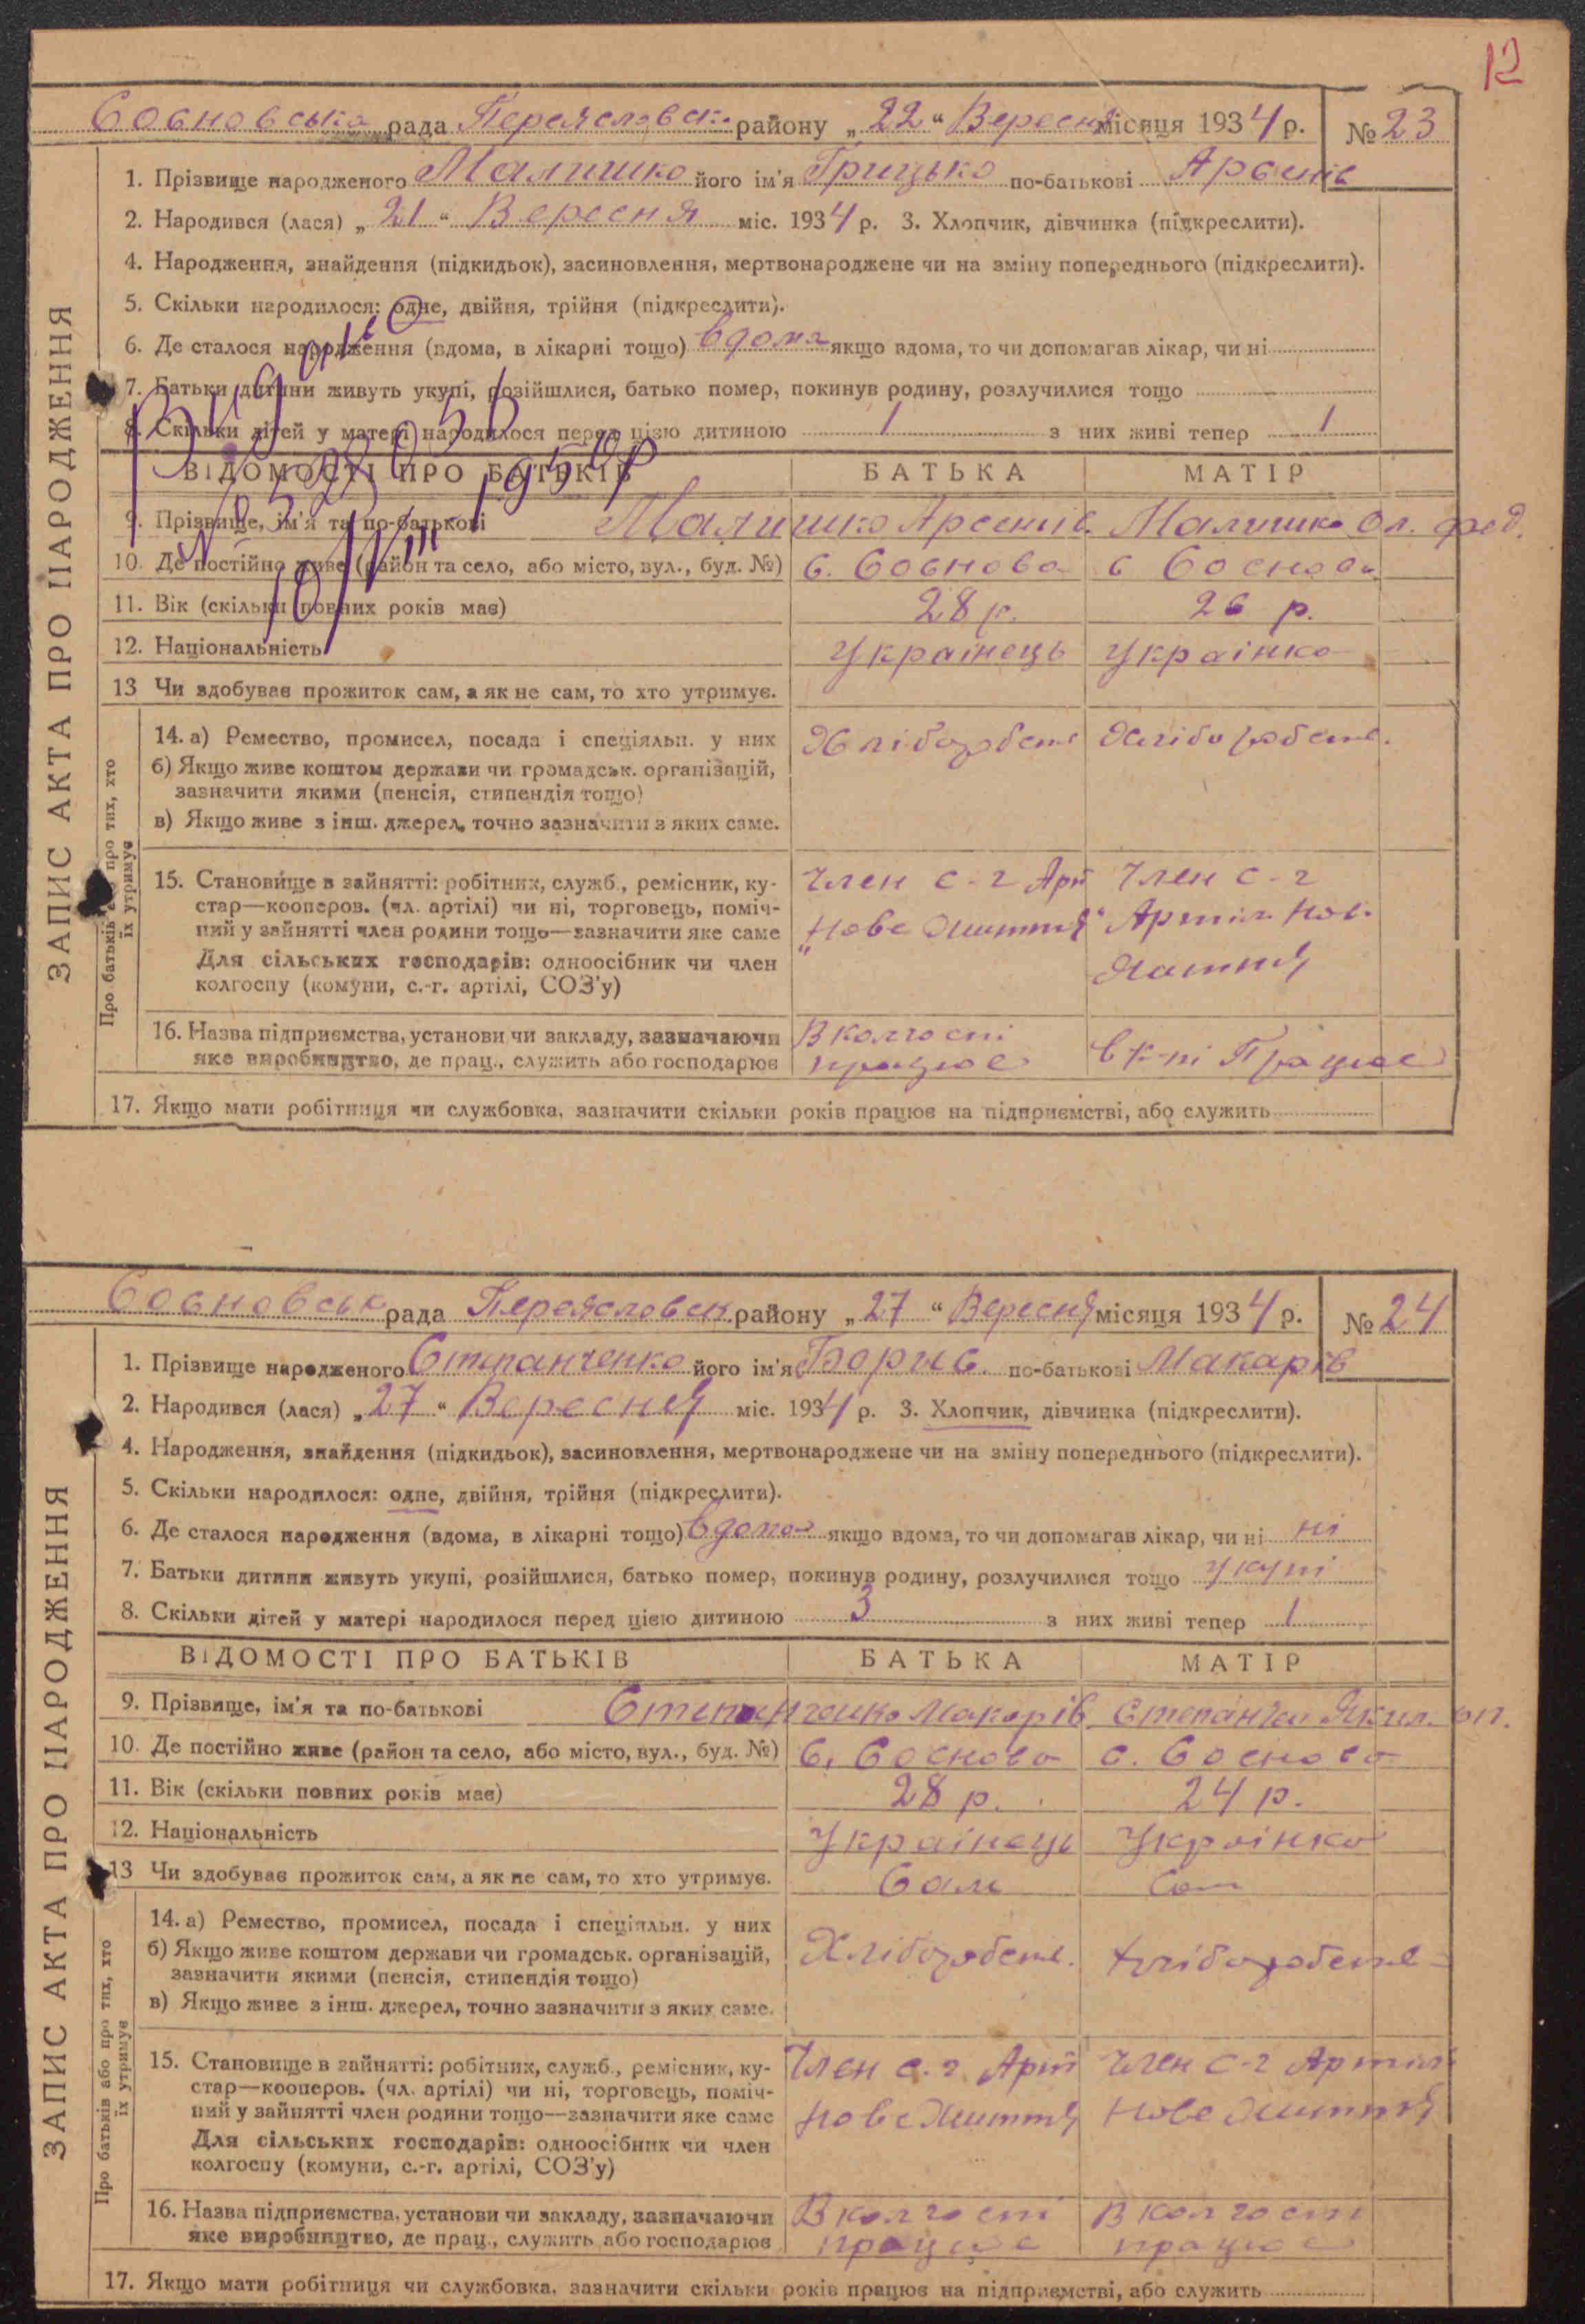 12
Сосновська рада Переяславськ. району „22“ Вересня місяця 1934 р. № 23
1. Прізвище народженого Малишко його ім'я Грицько по-батькові Арсенів
2. Народився (лася) „21“ Вересня міс. 1934 р. 3. Хлопчик, дівчинка (підкреслити).
4. Народження, знайдення (підкидьок), засиновлення, мертвонароджене чи на зміну попереднього (підкреслити).
5. Скільки народилося: одне, двійня, трійня (підкреслити).
6. Де сталося народження (вдома, в лікарні тощо) вдома якщо вдома, то чи допомагав лікар, чи ні
7. Батьки дитини живуть укупі, розійшлися, батько помер, покинув родину, розлучилися тощо
8. Скільки дітей у матері народилося перед цією дитиною 1 з них живі тепер 1
ВІДОМОСТІ ПРО БАТЬКІВ БАТЬКА МАТІР
9. Прізвище, ім'я та по-батькові Малишко Арсентів Малишко Ол. Фед.
10. Де постійно живе (район та село, або місто, вул., буд. №) с. Соснова с Соснова
11. Вік (скільки повних років має) 28 р. 26 р.
12. Національність Українець Українка
13 Чи здобуває прожиток сам, а як не сам, то хто утримує.
14. а) Ремество, промисел, посада і спеціяльн. у них Хлібороbств Хліборобств.
б) Якщо живе коштом держави чи громадськ. організацій,
зазначити якими (пенсія, стипендія тощо)
в) Якщо живе з інш. джерел, точно зазначити з яких саме.
15. Становище в зайнятті: робітник, служб., ремісник, ку- Член с-г Арт Член с-г
стар—кооперов. (чл. артілі) чи ні, торговець, поміч- „Нове Життя“ Артіл. Нов.
ний у зайнятті член родини тощо—зазначити яке саме Життя
Для сільських господарів: одноосібник чи член
колгоспу (комуни, с.-г. артілі, СОЗ'у)
16. Назва підприємства, установи чи закладу, зазначаючи В колгоспі в к-пі Працює
яке виробництво, де прац., служить або господарює працює
17. Якщо мати робітниця чи службовка, зазначити скільки років працює на підприємстві, або служить
ЗАПИС АКТА ПРО НАРОДЖЕННЯ
Про батьків або про тих, хто
їх утримує
Сосновськ рада Переяславськ. району „27“ Вересня місяця 1934 р. № 24
1. Прізвище народженого Степанченко його ім'я Борис. по-батькові Макарів
2. Народився (лася) „27“ Вересня міс. 1934 р. 3. Хлопчик, дівчинка (підкреслити).
4. Народження, знайдення (підкидьок), засиновлення, мертвонароджене чи на зміну попереднього (підкреслити).
5. Скільки народилося: одне, двійня, трійня (підкреслити).
6. Де сталося народження (вдома, в лікарні тощо) вдома якщо вдома, то чи допомагав лікар, чи ні ні
7. Батьки дитини живуть укупі, розійшлися, батько помер, покинув родину, розлучилися тощо укупі
8. Скільки дітей у матері народилося перед цією дитиною 3 з них живі тепер 1
ВІДОМОСТІ ПРО БАТЬКІВ БАТЬКА МАТІР
9. Прізвище, ім'я та по-батькові Степанченко Макарів Степанчен
10. Де постійно живе (район та село, або місто, вул., буд. №) С. Соснова с. Соснова
11. Вік (скільки повних років має) 28 р. 24 р.
12. Національність Українець Українка
13 Чи здобуває прожиток сам, а як не сам, то хто утримує. Сам Сам
14. а) Ремество, промисел, посада і спеціяльн. у них
б) Якщо живе коштом держави чи громадськ. організацій, Хліборобств. Хліборобств
зазначити якими (пенсія, стипендія тощо)
в) Якщо живе з інш. джерел, точно зазначити з яких саме.
15. Становище в зайнятті: робітник, служб., ремісник, ку- Член с.г. Арт Член с-г Артіл
стар—кооперов. (чл. артілі) чи ні, торговець, поміч-
ний у зайнятті член родини тощо—зазначити яке саме Нове Життя Нове Життя
Для сільських господарів: одноосібник чи член
колгоспу (комуни, с.-г. артілі, СОЗ'у)
16. Назва підприємства, установи чи закладу, зазначаючи В колгоспі В колгоспі
яке виробництво, де прац., служить або господарює працює працює
17. Якщо мати робітниця чи службовка, зазначити скільки років працює на підприємстві, або служить
ЗАПИС АКТА ПРО НАРОДЖЕННЯ
Про батьків або про тих, хто
їх утримує